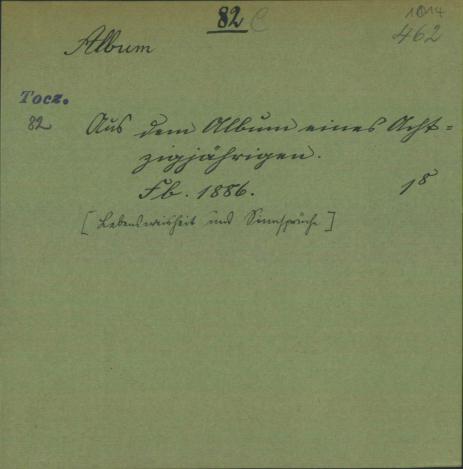 82 C
1014
462
Album
Tocz.
82 Aus dem Album eines Acht=
zigjährigen.
Fb. 1886. 1 8
[Lebensweisheit und Sinnsprüche]